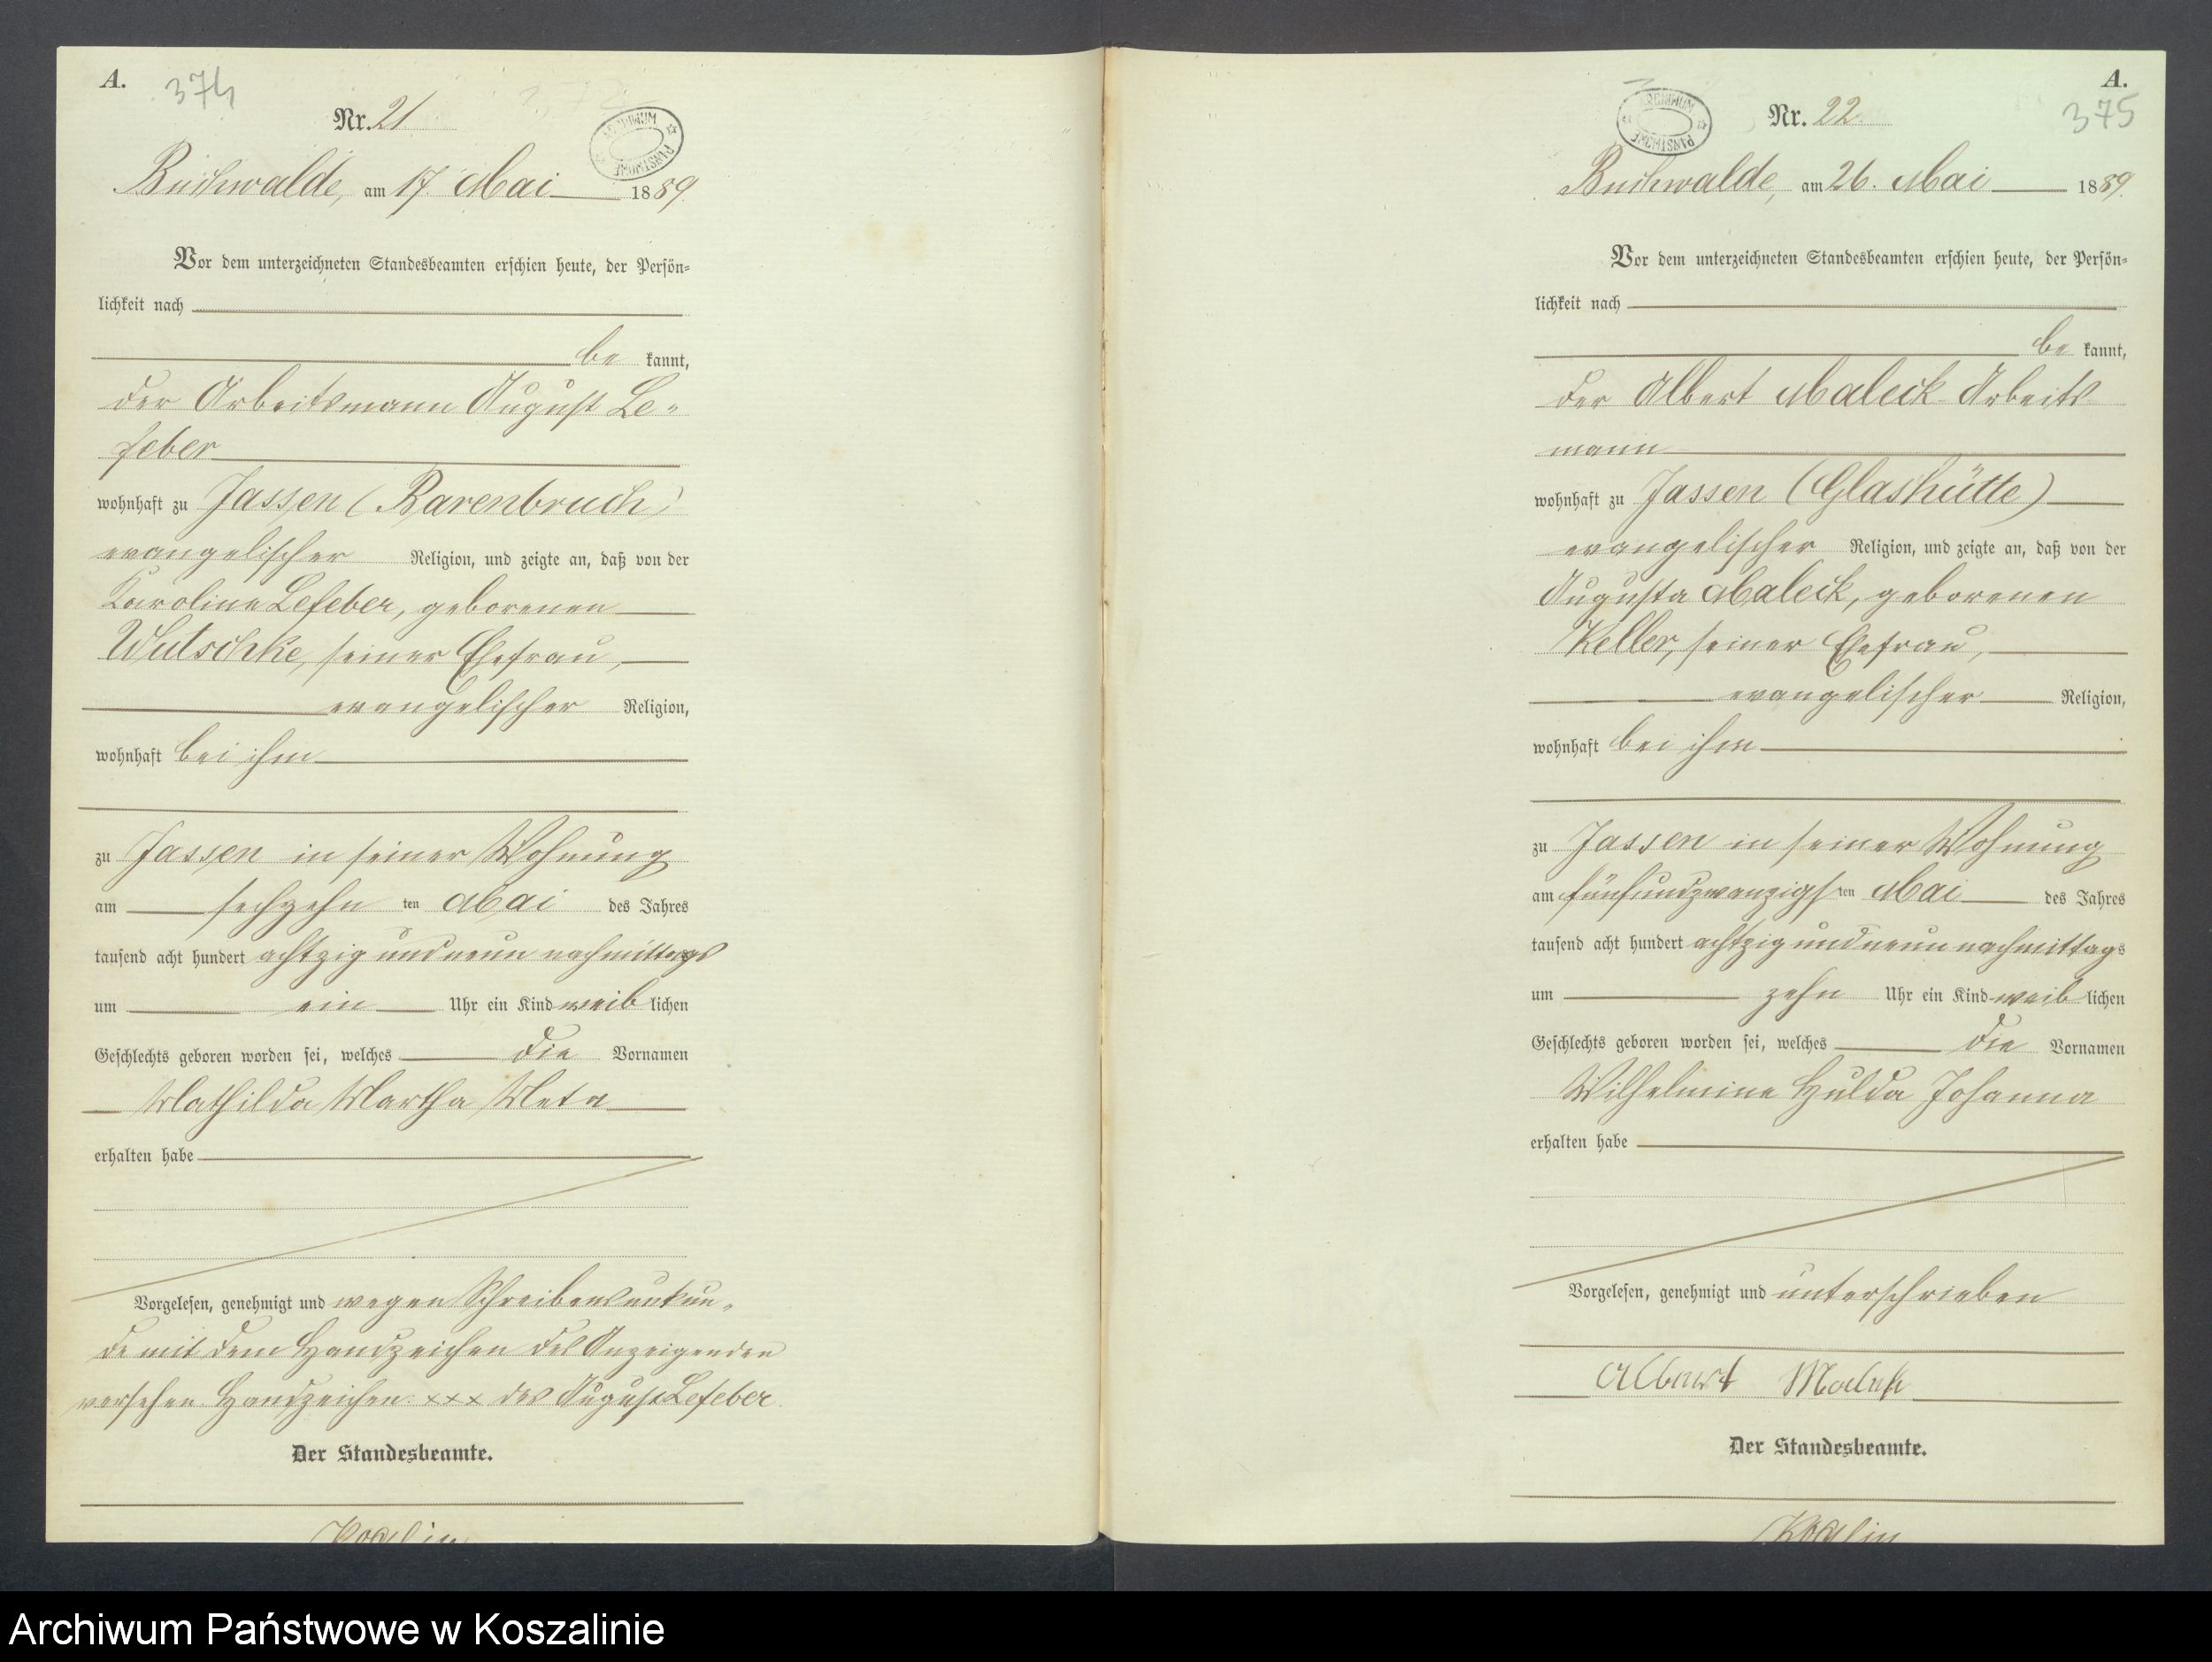 A.
374
Nr. 21
ARCHIWUM PAŃSTWOWE
Buchwalde, am 17. Mai 1889.
Vor dem unterzeichneten Standesbeamten erschien heute, der Persön-
lichkeit nach
be kannt,
der Arbeitsmann August Le-
feber
wohnhaft zu Jassen (Barenbruch)
evangelischer Religion, und zeigte an, daß von der
Karoline Lefeber, geborenen
Wutschke, seiner Ehefrau,
evangelischer Religion,
wohnhaft bei ihm
zu Jassen in seiner Wohnung
am sechzehn ten Mai des Jahres
tausend acht hundert achtzig und neun nachmittags
um ein Uhr ein Kind weib lichen
Geschlechts geboren worden sei, welches die Vornamen
Mathilda Martha Meta
erhalten habe
Vorgelesen, genehmigt und wegen Schreibensunkun-
de mit dem Handzeichen des Anzeigenden
versehen Handzeichen xxx des August Lefeber.
Der Standesbeamte.
A.
375
Nr. 22.
ARCHIWUM PAŃSTWOWE
Buchwalde, am 26. Mai 1889.
Vor dem unterzeichneten Standesbeamten erschien heute, der Persön-
lichkeit nach
be kannt,
der Albert Maleck Arbeits
mann
wohnhaft zu Jassen (Glashütte)
evangelischer Religion, und zeigte an, daß von der
Augusta Maleck, geborenen
Keller, seiner Ehefrau,
evangelischer Religion,
wohnhaft bei ihm
zu Jassen in seiner Wohnung
am fünfundzwanzigs ten Mai des Jahres
tausend acht hundert achtzig und neun nachmittags
um zehn Uhr ein Kind weib lichen
Geschlechts geboren worden sei, welches die Vornamen
Wilhelmine Hulda Johanna
erhalten habe
Vorgelesen, genehmigt und unterschrieben
Albert
Der Standesbeamte.
Archiwum Państwowe w Koszalinie